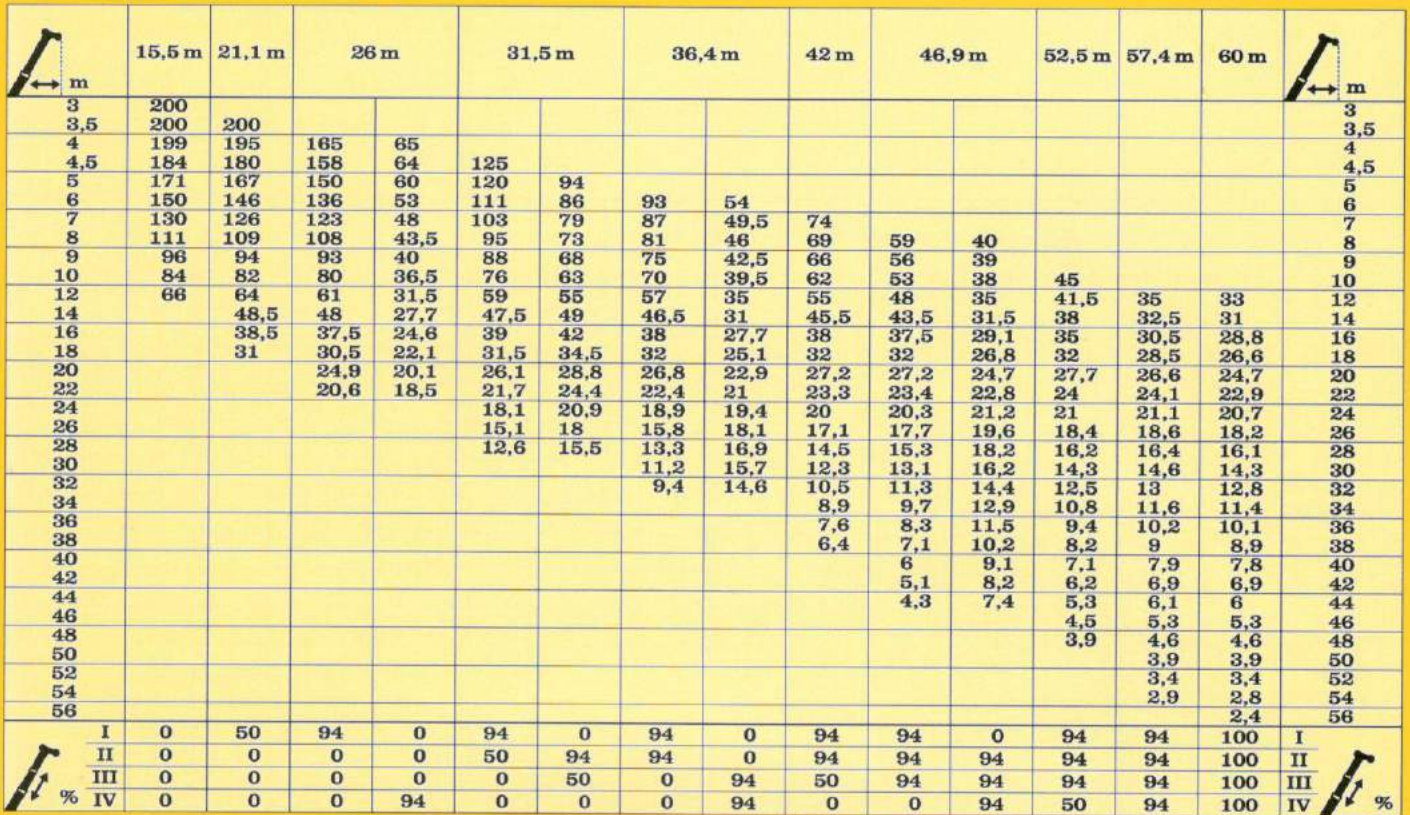 15,5 m 21,1 m 26 m 31,5 m 36,4 m 42 m 46,9 m 52,5 m 57,4 m 60 m
m m
3 200 3
3,5 200 200 3,5
4 199 195 165 65 4
4,5 184 180 158 64 125 4,5
5 171 167 150 60 120 94 5
6 150 146 136 53 111 86 93 54 6
7 130 126 123 48 103 79 87 49,5 74 7
8 111 109 108 43,5 95 73 81 46 69 59 40 8
9 96 94 93 40 88 68 75 42,5 66 56 39 9
10 84 82 80 36,5 76 63 70 39,5 62 53 38 45 10
12 66 64 61 31,5 59 55 57 35 55 48 35 41,5 35 33 12
14 48,5 48 27,7 47,5 49 46,5 31 45,5 43,5 31,5 38 32,5 31 14
16 38,5 37,5 24,6 39 42 38 27,7 38 37,5 29,1 35 30,5 28,8 16
18 31 30,5 22,1 31,5 34,5 32 25,1 32 32 26,8 32 28,5 26,6 18
20 24,9 20,1 26,1 28,8 26,8 22,9 27,2 27,2 24,7 27,7 26,6 24,7 20
22 20,6 18,5 21,7 24,4 22,4 21 23,3 23,4 22,8 24 24,1 22,9 22
24 18,1 20,9 18,9 19,4 20 20,3 21,2 21 21,1 20,7 24
26 15,1 18 15,8 18,1 17,1 17,7 19,6 18,4 18,6 18,2 26
28 12,6 15,5 13,3 16,9 14,5 15,3 18,2 16,2 16,4 16,1 28
30 11,2 15,7 12,3 13,1 16,2 14,3 14,6 14,3 30
32 9,4 14,6 10,5 11,3 14,4 12,5 13 12,8 32
34 8,9 9,7 12,9 10,8 11,6 11,4 34
36 7,6 8,3 11,5 9,4 10,2 10,1 36
38 6,4 7,1 10,2 8,2 9 8,9 38
40 6 9,1 7,1 7,9 7,8 40
42 5,1 8,2 6,2 6,9 6,9 42
44 4,3 7,4 5,3 6,1 6 44
46 4,5 5,3 5,3 46
48 3,9 4,6 4,6 48
50 3,9 3,9 50
52 3,4 3,4 52
54 2,9 2,8 54
56 2,4 56
I 0 50 94 0 94 0 94 0 94 94 0 94 94 100 I
II 0 0 0 0 50 94 94 0 94 94 94 94 94 100 II
III 0 0 0 0 0 50 0 94 50 94 94 94 94 100 III
% IV 0 0 0 94 0 0 0 94 0 0 94 50 94 100 IV %